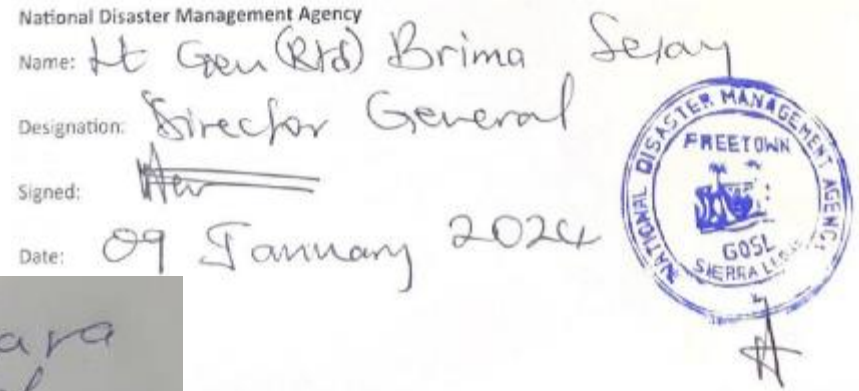 National Disaster Management Agency
Name: Lt Gen (Rtd) Brima Sesay
Designation: Director General
Signed:
Date: 09 January 2024
NATIONAL DISASTER MANAGEMENT AGENCY
FREETOWN
GOSL
SIERRA LEONE
ara